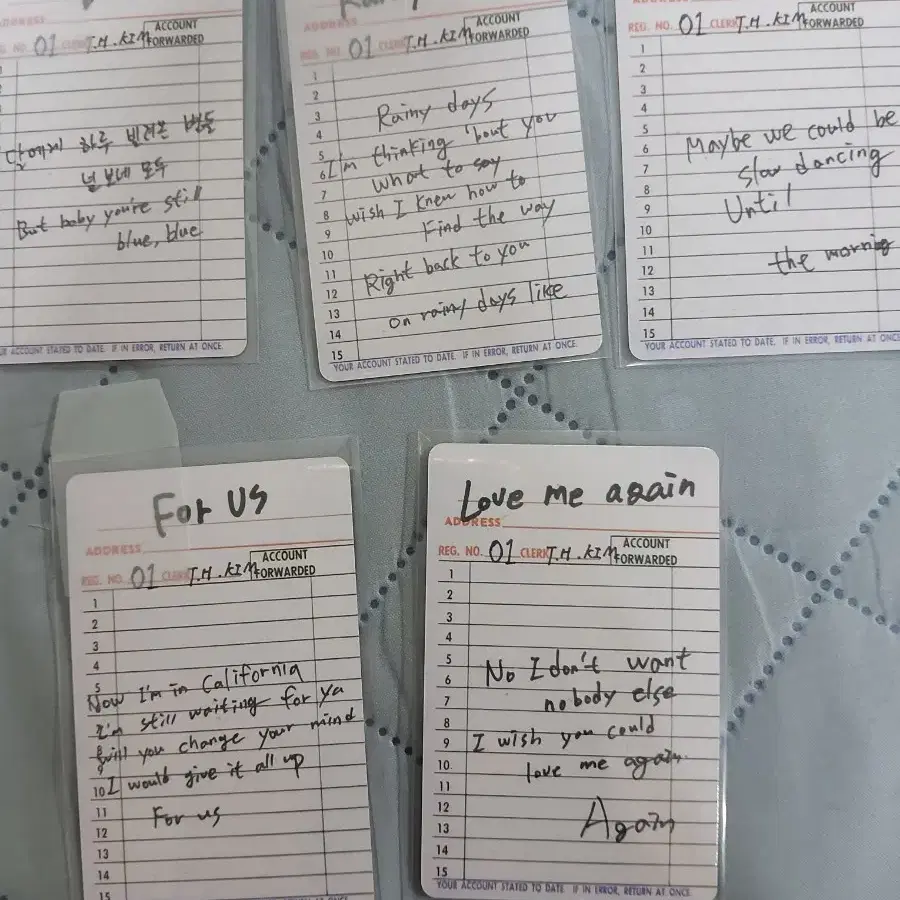 ADDRESS
REG. NO. 01 CLERK T.H.KIM ACCOUNT FORWARDED
1
달에게 하루 빌려온 밤들
널 보네 모두
But baby you're still
blue, blue
YOUR ACCOUNT STATED TO DATE. IF IN ERROR, RETURN AT ONCE.
ADDRESS
REG. NO. 01 CLERK T.H.KIM ACCOUNT FORWARDED
1
2
3 Rainy days
4
5 I'm thinking 'bout you
6
7 What to say
8 wish I knew how to
9 Find the way
10
11 Right back to you
12
13 on rainy days like
14
15
YOUR ACCOUNT STATED TO DATE. IF IN ERROR, RETURN AT ONCE.
ADDRESS
REG. NO. 01 CLERK T.H.KIM ACCOUNT FORWARDED
1
2
3
4
5
6 Maybe we could be
7 slow dancing
8
9 Until
10
11
12 the morning
13
14
15
YOUR ACCOUNT STATED TO DATE. IF IN ERROR, RETURN AT ONCE
For us
ADDRESS
REG. NO. 01 CLERK T.H.KIM ACCOUNT FORWARDED
1
2
3
4
5
Now I'm in California
I'm still waiting for ya
8 will you change your mind
9
10 I would give it all up
11 For us
12
13
14
15
Love me again
ADDRESS
REG. NO. 01 CLERK T.H.KIM ACCOUNT FORWARDED
1
2
3
4
5
6 No I don't want
7 nobody else
8
9 I wish you could
10 love me again
11
12
13 Again
14
15
YOUR ACCOUNT STATED TO DATE. IF IN ERROR, RETURN AT ONCE